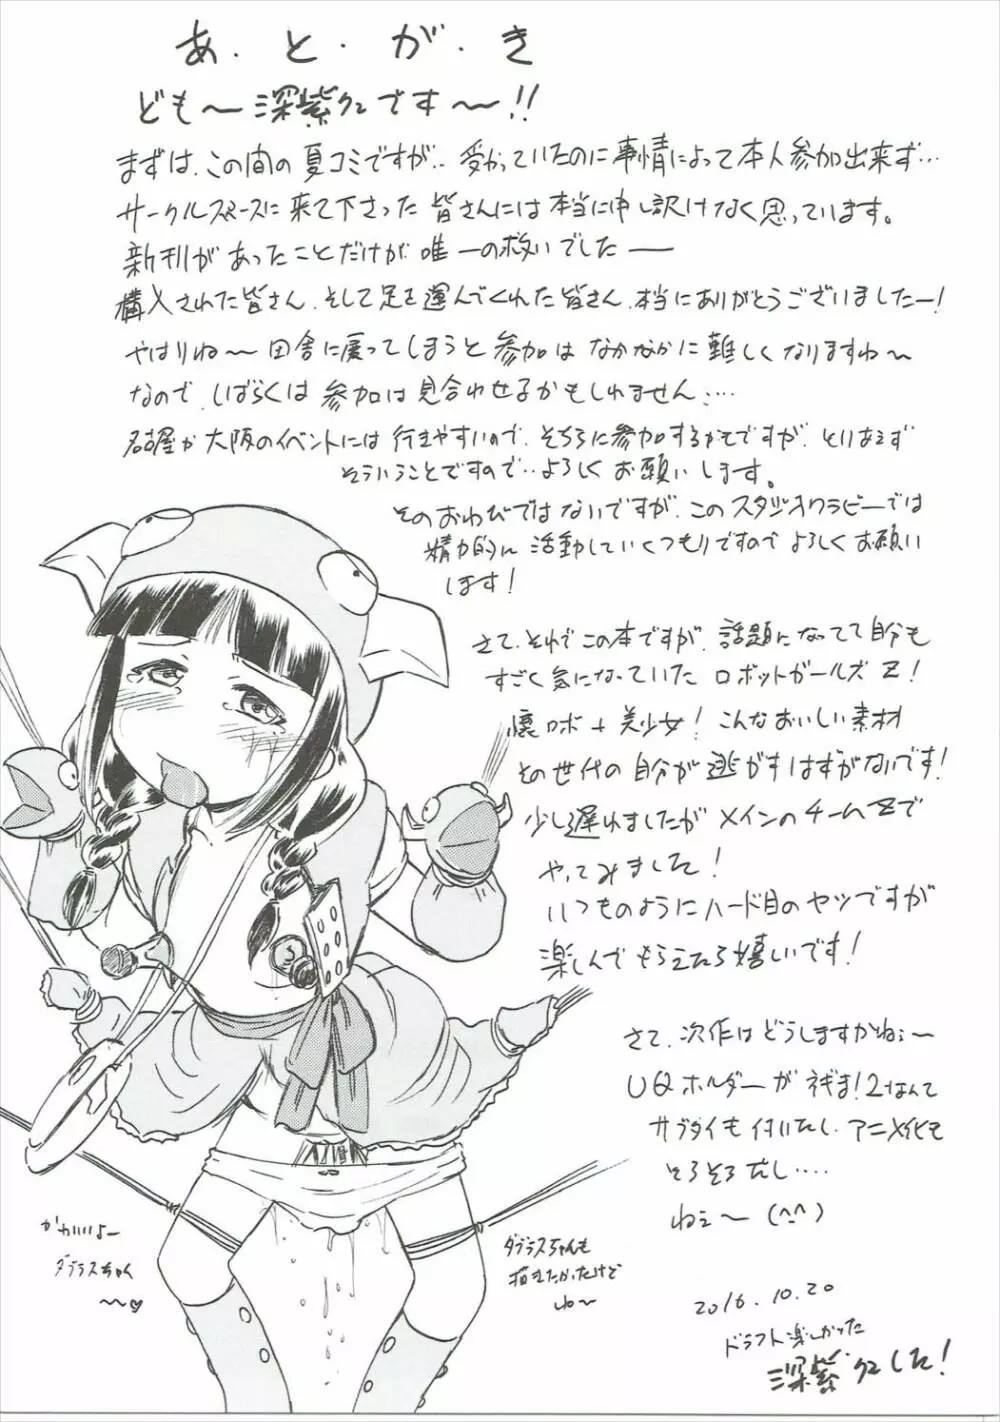 あ・と・が・き
ども～深紫クニです～!!
まずは、この間の夏コミですが… 受かっていたのに事情によって本人参加出来ず…
サークルスペースに来て下さった皆さんには本当に申し訳けなく思っています。
新刊があったことだけが唯一の救いでしたーー
購入された皆さん、そして足を運んでくれた皆さん、本当にありがとうございましたー!
やはりね～ 田舎に戻ってしまうと参加はなかなかに難しくなりますね～
なので、しばらくは参加は見合わせるかもしれません….
名古屋か大阪のイベントには行きやすいので、そちらに参加するかもですが、とりあえず
そういうことですので‥よろしくお願いします。
そのおわびではないですが、このスタジオワラビーでは
精力的に活動していくつもりですのでよろしくお願い
します!
さて、それでこの本ですが、話題になってて自分も
すごく気になっていた ロボットガールズZ!
懐ロボ+美少女! こんなおいしい素材
その世代の自分が逃がすはずがないです!
少し遅れましたがメインのチームZで
やってみました!
いつものようにハード目のヤツですが
楽しんでもらえたら嬉しいです!
さて、次作はどうしますかねぇ～
UQホルダーがネギま!2なんて
サブタイも付いたし、アニメ化も
そろそろだし….
ねぇ～ (^^)
かわいいよー
ダブラスちゃん
～～♡
ダブラスちゃんも
描きたかったけど
ね～
2016.10.20
ドラフト楽しかった
深紫クニした!